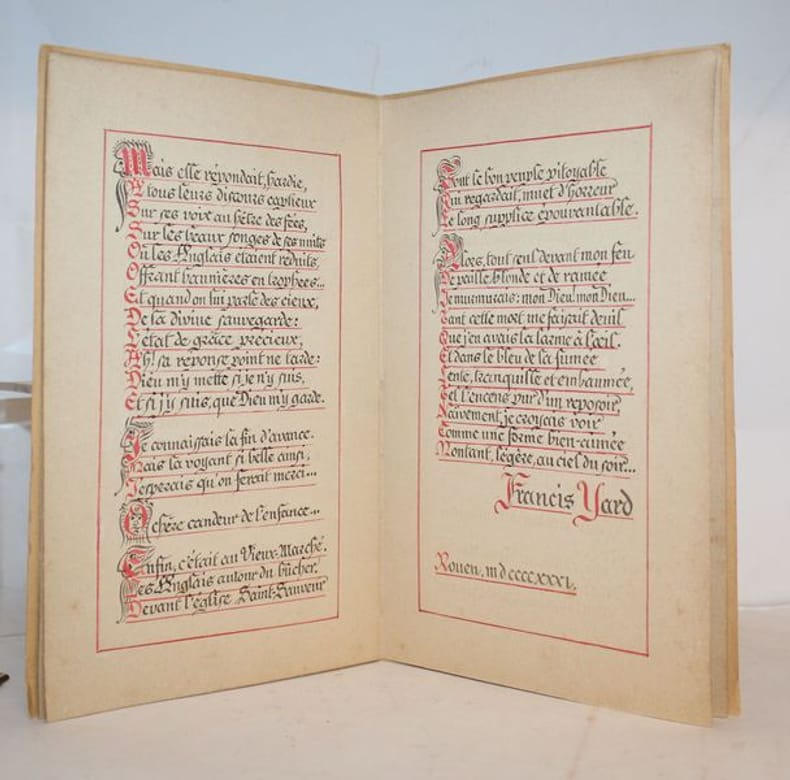 Mais elle répondait, hardie,
A tous leurs discours captieux
Sur ses voix au hêtre des fées,
Sur les beaux songes de ses nuits
Où les Anglais étaient réduits,
Offrant bannières en trophées...
Et quand on lui parle des cieux,
De la divine sauvegarde:
L'état de grâce précieux,
Ah! sa réponse point ne tarde:
Dieu m'y mette si je n'y suis,
Et si j'y suis, que Dieu m'y garde.
Je connaissais la fin d'avance.
Mais la voyant si belle ainsi,
J'espérais qu'on ferait merci...
O chère candeur de l'enfance...
Enfin, c'était au Vieux-Marché.
Les Anglais autour du bûcher,
Devant l'église Saint-Sauveur
Tout le bon peuple pitoyable
Qui regardait, muet d'horreur
Le long supplice épouvantable.
Alors, tout seul devant mon feu
De paille blonde et de ramée
Je murmurais: mon Dieu! mon Dieu...
Tant cette mort me faisait deuil
Que j'en avais la larme à l'œil.
Et dans le bleu de la fumée
Lente, tranquille et embaumée,
Tel l'encens pur d'un reposoir,
Naïvement je croyais voir
Comme une forme bien-aimée
Montant, légère, au ciel du soir...
Francis Yard
Rouen, mdccccxxxi.